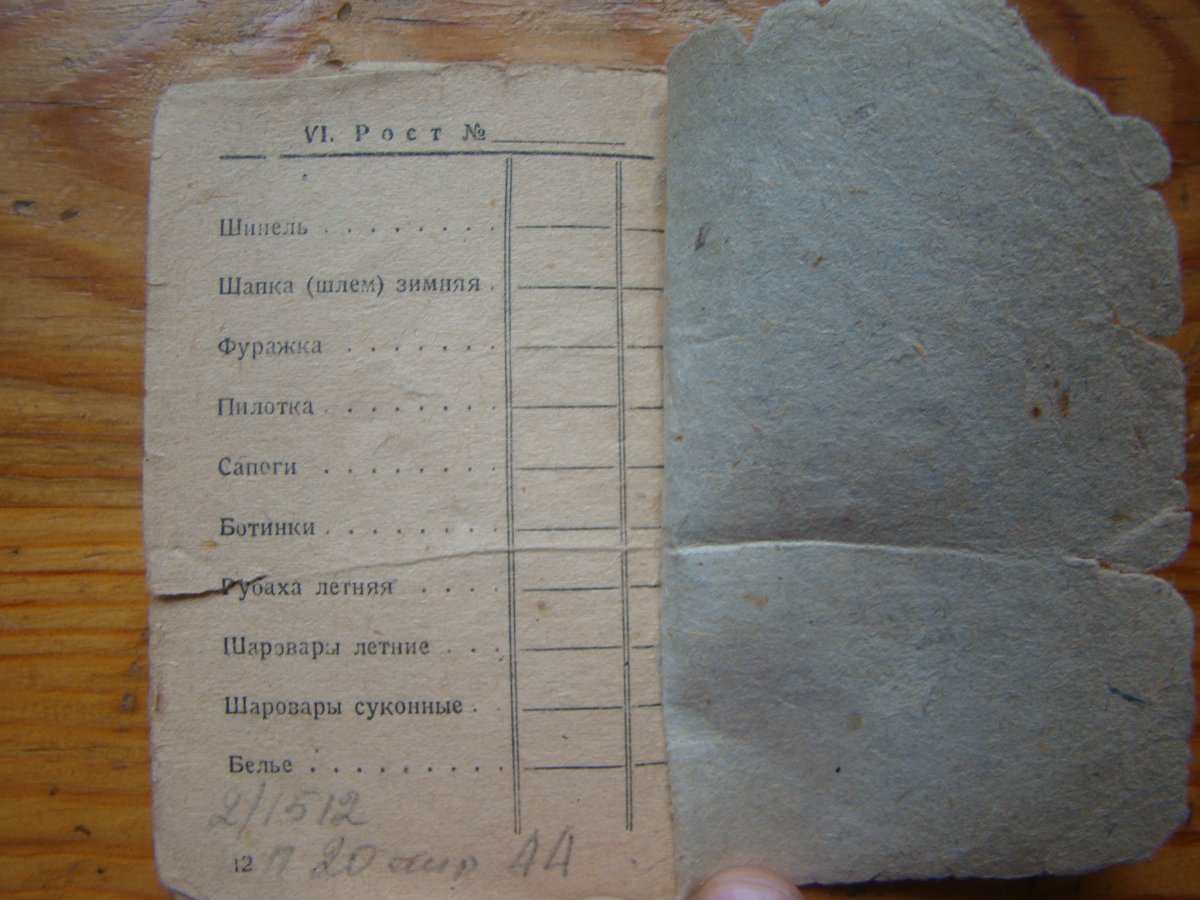 VI. Рост №
Шинель
Шапка (шлем) зимняя
Фуражка
Пилотка
Сапоги
Ботинки
Рубаха летняя
Шаровары летние
Шаровары суконные
Белье
2/1512
12 П 20 44